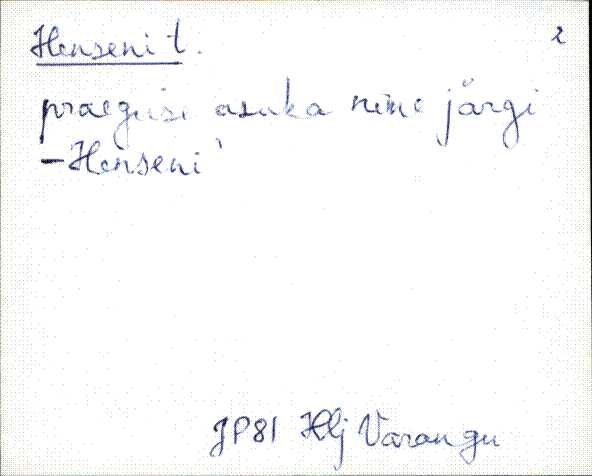 Henseni t. 2
praegusi asuka nime järgi
- Henseni
JP81 Hlj Varangu